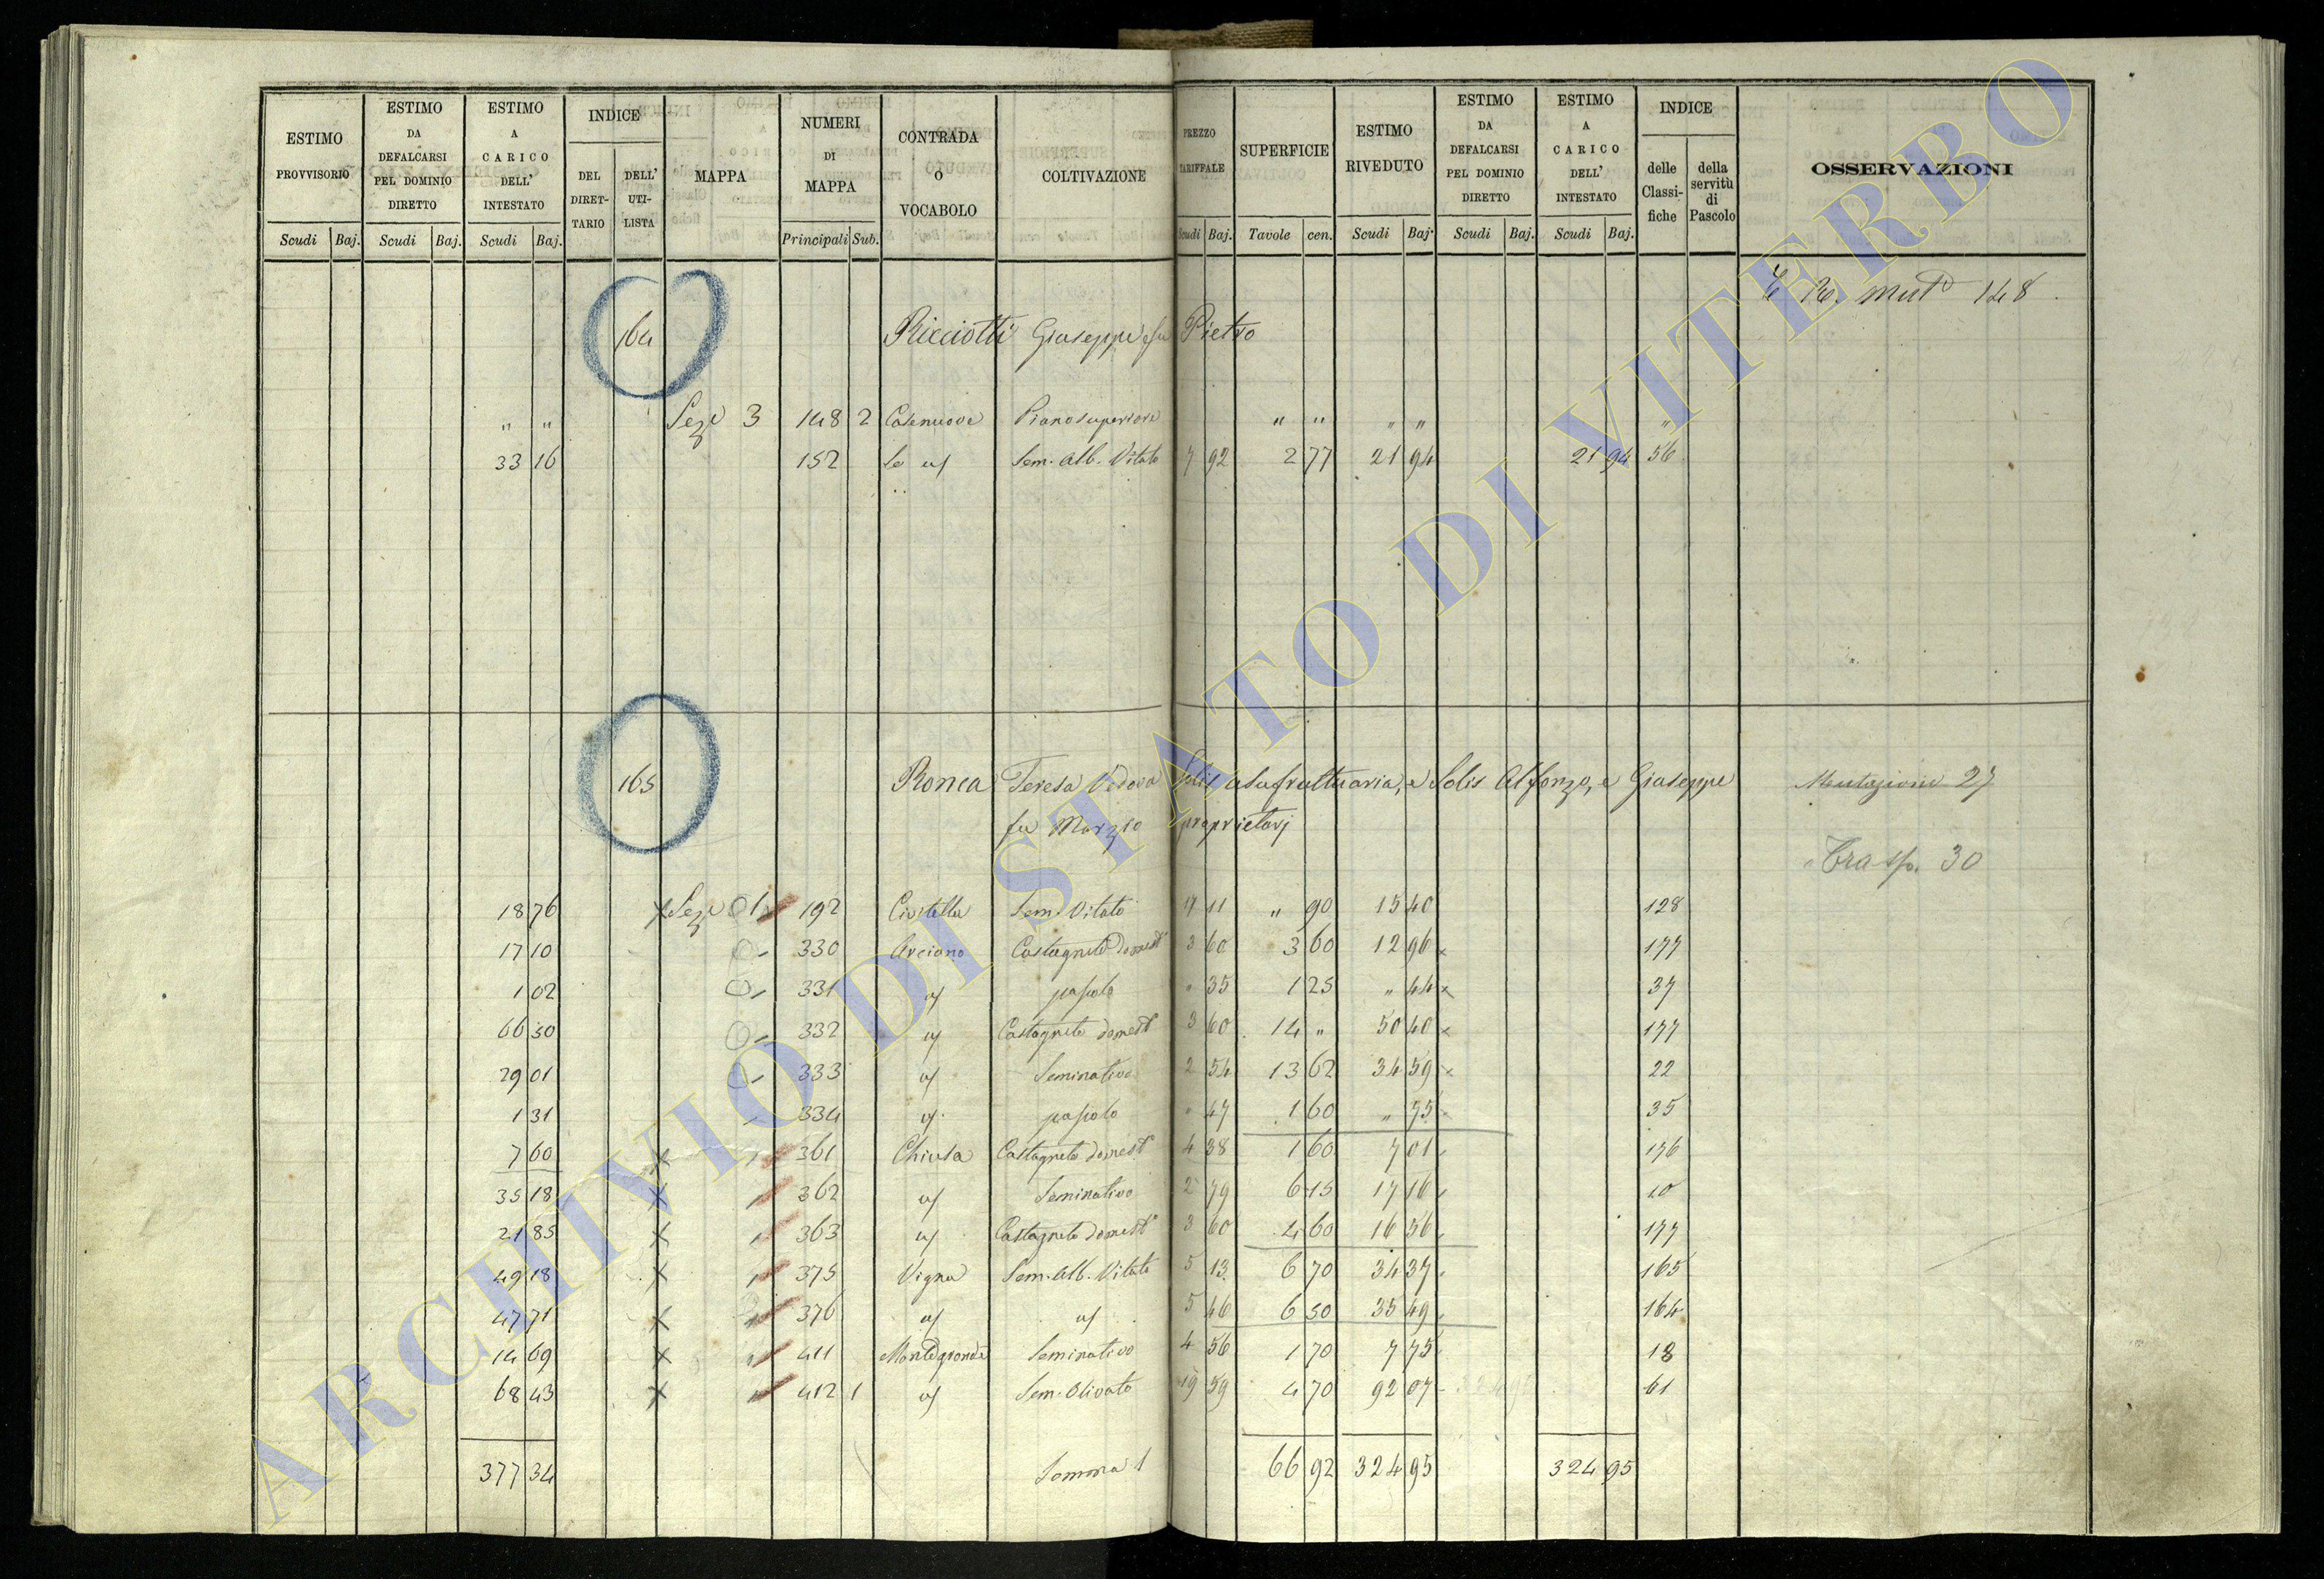 ESTIMO PROVVISORIO Scudi Baj.
ESTIMO DA DEFALCARSI PEL DOMINIO DIRETTO Scudi Baj.
ESTIMO A CARICO DELL' INTESTATO Scudi Baj.
INDICE DEL DIRET-TARIO DELL' UTI-LISTA
MAPPA
NUMERI DI MAPPA Principali Sub.
CONTRADA O VOCABOLO
COLTIVAZIONE
PREZZO TARIFFALE Scudi Baj.
SUPERFICIE Tavole cen.
ESTIMO RIVEDUTO Scudi Baj.
ESTIMO DA DEFALCARSI PEL DOMINIO DIRETTO Scudi Baj.
ESTIMO A CARICO DELL' INTESTATO Scudi Baj.
INDICE delle Classi-fiche della servitù di Pascolo
OSSERVAZIONI
mut 148
164 Ricciotti Giuseppe fu Pietro
" " Sez 3 148 2 Casenuove Piano superiore " " " " "
33 16 152 Le Sem. Alb. Vitato 7 92 2 77 21 94 21 94 56
165 Ronca Teresa Vedova Solis usufruttuaria, e Solis Alfonzo, e Giuseppe Mutazione 27
fu Marzio proprietarj
Trasp. 30
18 76 x Sez 1 192 Civitella Sem. Vitato 17 11 " 90 15 40 128
17 10 330 Arciano Castagneto domest 3 60 3 60 12 96 x 177
1 02 331 pascolo " 35 1 25 " 44 x 37
66 50 332 Castagneto domest 3 60 14 " 50 40 x 177
29 01 333 Seminativo 2 54 13 62 34 59 x 22
1 31 334 pascolo " 47 1 60 " 75 35
7 60 x 361 Chiusa Castagneto domest 4 38 1 60 7 01 176
35 18 x 362 Seminativo 2 79 6 15 17 16 10
21 85 x 363 Castagneto domest 3 60 4 60 16 56 177
49 18 x 375 Vigna Sem. Alb. Vitato 5 13 6 70 34 37 165
47 71 x 376 5 46 6 50 35 49 164
14 69 x 411 Montegrande Seminativo 4 56 1 70 7 75 18
68 43 x 412 1 Sem. Olivato 19 59 4 70 92 07 61
377 34 Somma 1 66 92 324 95 324 95
ARCHIVIO DI STATO DI VITERBO